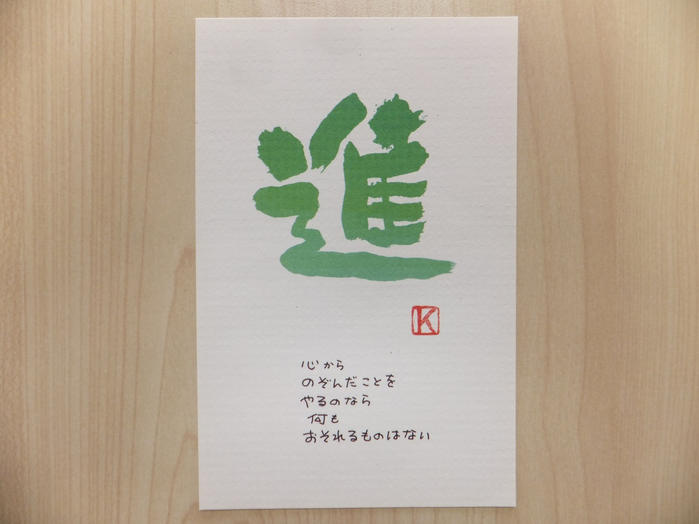 進
K
心から
のぞんだことを
やるのなら
何も
おそれるものはない